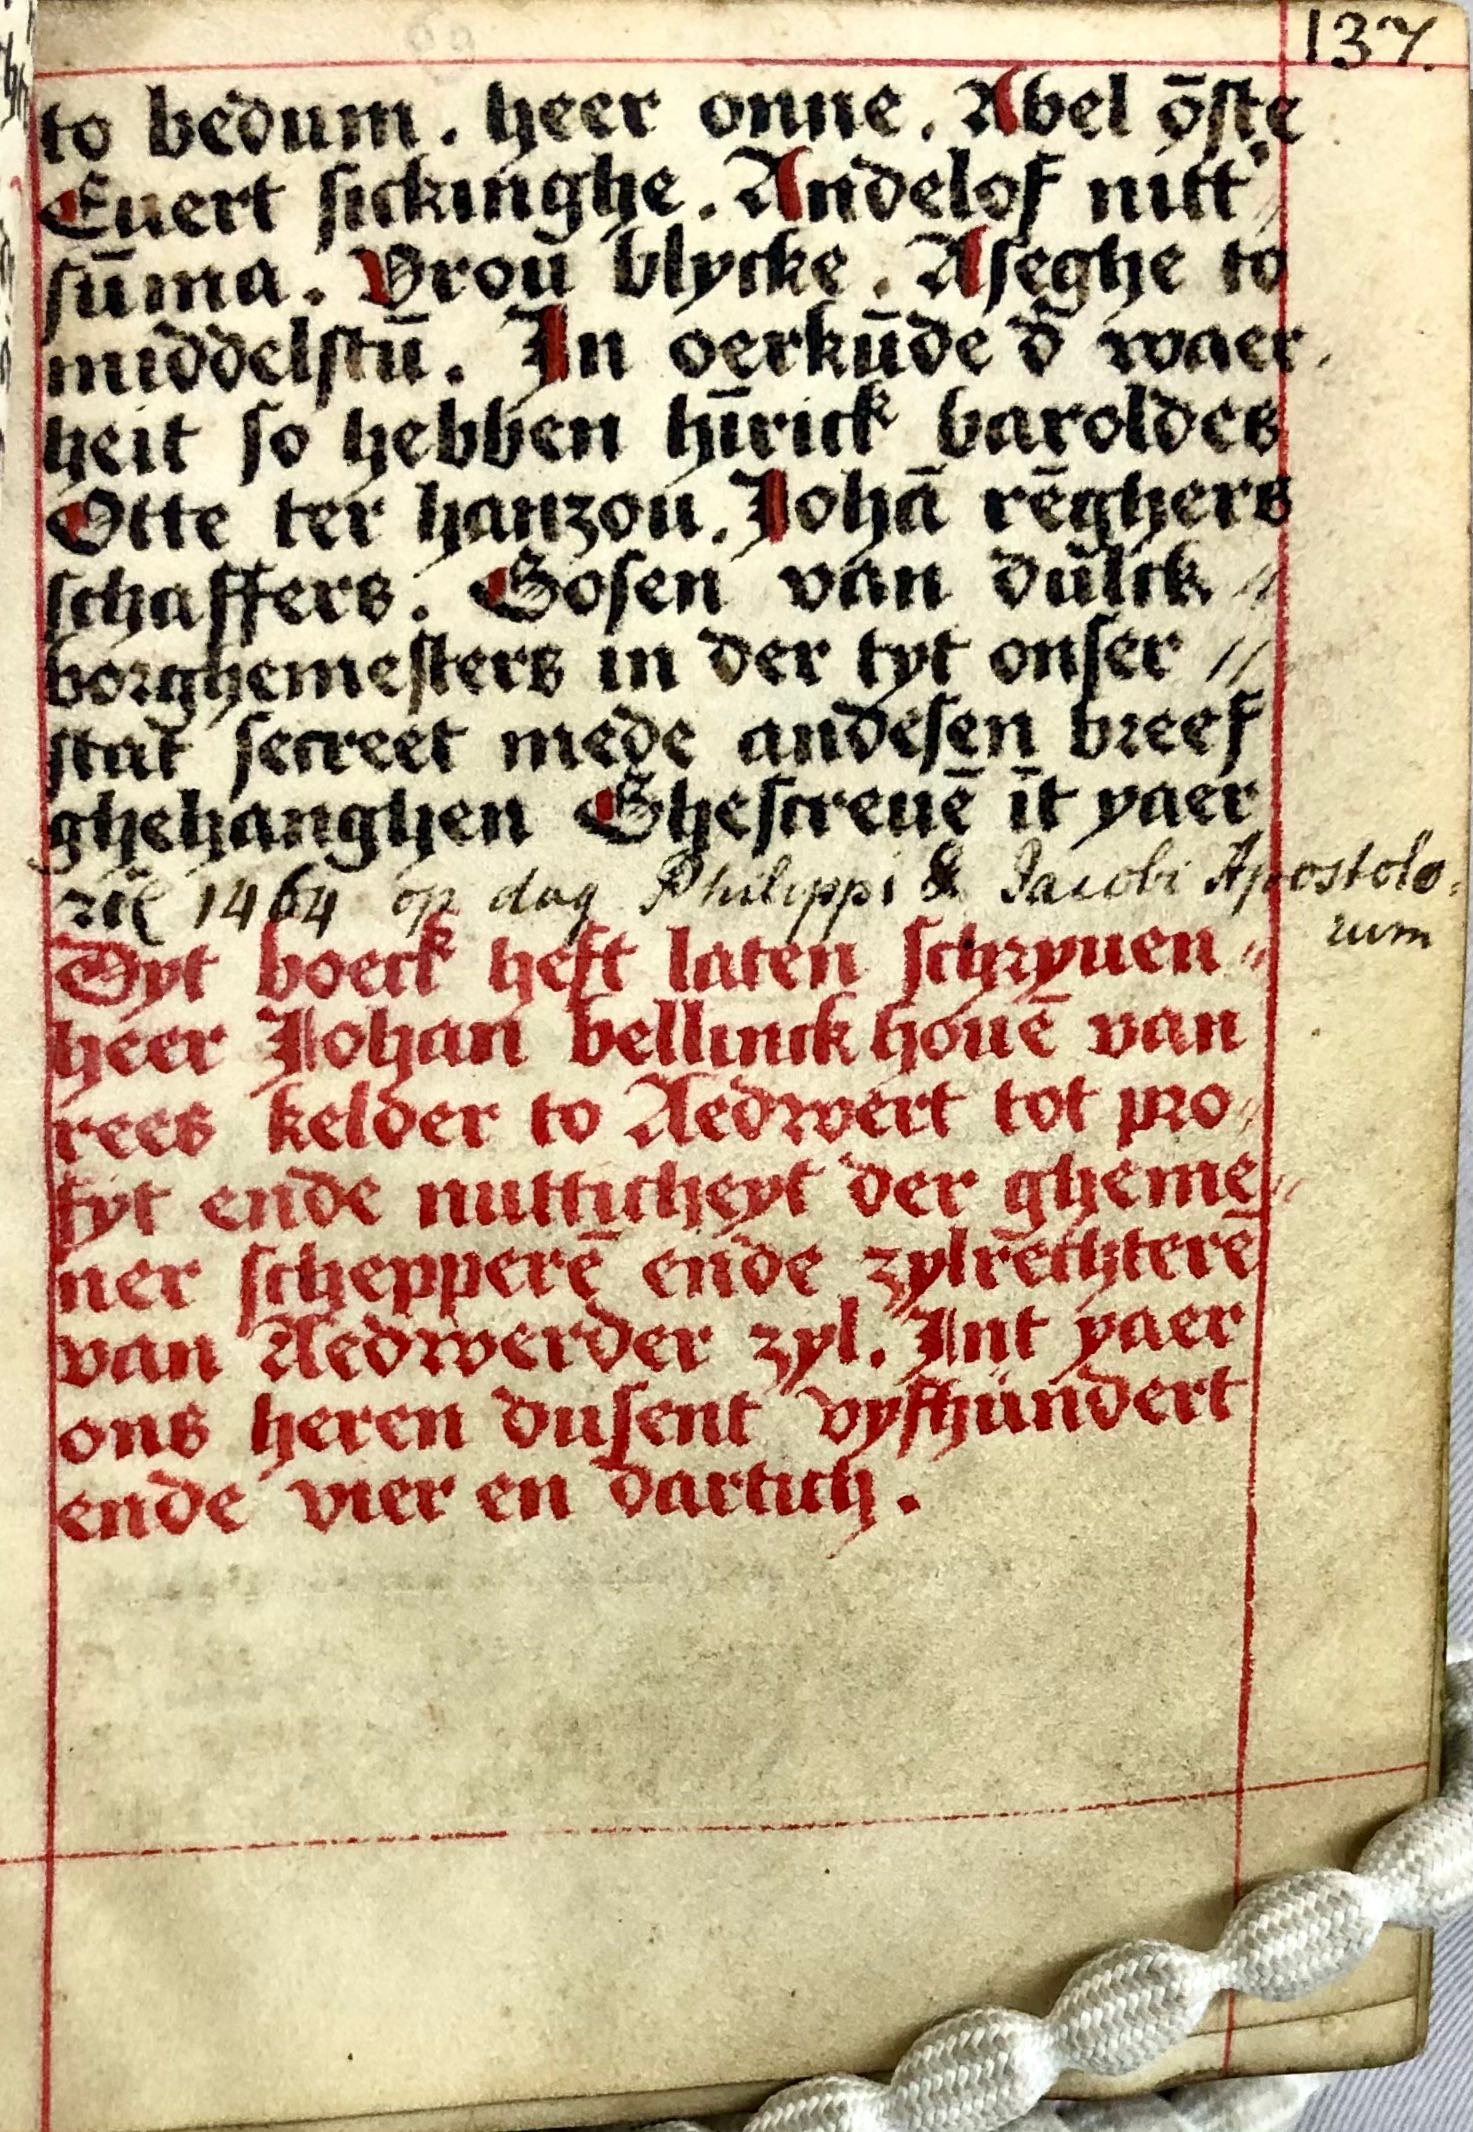 137.
to bedum. heer onne. Abel ōste
Euert sickinghe. Andelof nitt'//
sūma. Vrou blycke. Aseghe to
middelstū. In oerkūde d̄ waer
heit so hebben hīrick baroldes
Otte ter hanzou. Johā rēghers
schaffers. Gosen van dulck //
borghemesters in der tyt onser //
stat secreet mede andesen breef
ghehanghen Ghescreuē īt yaer
1464 op dag Philippi & Jacobi Apostolo=
rum
Dyt boeck heft laten schryuen //
heer Johan bellinckhouē van
rees kelder to Aedwert tot pro//
fyt ende nutticheyt der gheme//
ner schepperē ende zylrechterē
van Aedwerder zyl. Int yaer
ons heren dusent vyfhundert
ende vier en dartich.